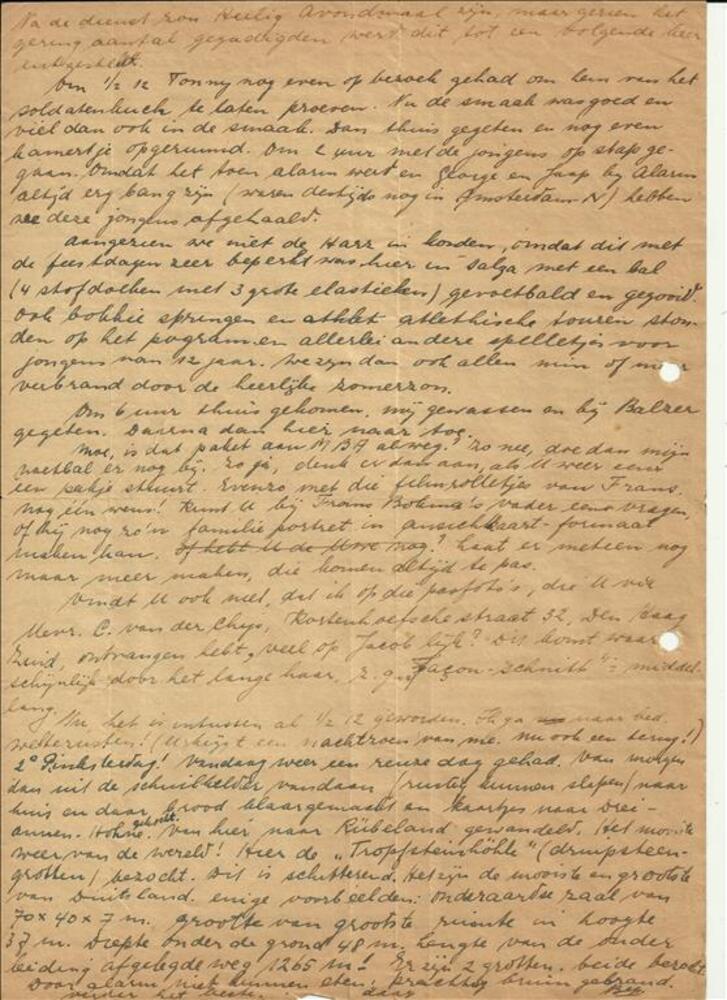 Na de dienst zou Heilig Avondmaal zijn, maar gezien het
gering aantal gegadigden werd dit tot een volgende keer
uitgesteld.
Om 1/2 12 Tonny nog even op bezoek gehad om hem van het
soldatenkuch te laten proeven. Nu de smaak was goed en
viel dan ook in de smaak. Dan thuis gegeten en nog even
kamertje opgeruimd. Om 2 uur met de jongens op stap ge-
gaan. Omdat het toen alarm werd en George en Jaap bij Alarm
altijd erg bang zijn (waren destijds nog in Amsterdam N) hebben
we deze jongens afgehaald.
Aangezien we niet de Harz in konden, omdat dit met
de feestdagen zeer beperkt was, hier in Salza met een bal
(4 stofdoeken met 3 grote elastieken) gevoetbald en gegooid.
Ook bokkie springen en athlet athlethische touren ston-
den op het program en allerlei andere spelletjes voor
jongens van 12 jaar. We zijn dan ook allen min of meer
verbrand door de heerlijke zomerzon.
Om 6 uur thuis gekomen, mij gewassen en bij Balzer
gegeten. Daarna dan hier naar toe.
Moe, is dat paket aan MBA al weg? Zo nee, doe dan mijn
voetbal er nog bij. Zo ja, denk er dan aan, als U weer eens
een pakje stuurt. Evenzo met die filmrolletjes van Frans.
Nog een wens! Kunt U bij Frans Botema's vader eens vragen,
of hij nog zo'n familie portret in ansichtkaart-formaat
maken kan. Of hebt U de Uwe nog? Laat er meteen nog
maar meer maken, die komen altijd te pas.
Vindt U ook niet, dat ik op die pasfoto's, die U via
Mevr. C. van der Chijs, straat 32, Den Haag
Zuid, ontvangen hebt, veel op Jacob lijk? Dit komt waar
schijnlijk door het lange haar, z.g. "Façon-schnitt" = middel-
lang.
Nu, het is intussen al 1/2 12 geworden. Ik ga naar bed.
Welterusten! (U krijgt een nachtzoen van me. Nu ook een terug!)
2e Pinksterdag! Vandaag weer een reuze dag gehad. Van morgen
dan uit de schuilkelder vandaan (rustig kunnen slapen) naar
huis en daar brood klaargemaakt en kaartjes naar Drei-
annen-Hohne gehaald. Van hier naar Rübeland gewandeld. Het mooiste
weer van de wereld! Hier de "Tropfsteinhöhle" (druipsteen-
grotten) bezocht. Dit is schitterend. Het zijn de mooiste en grootste
van Duitsland. Enige voorbeelden: onderaardse zaal van
70 x 40 x 7 m. grootte van grootste ruimte in hoogte
37 m. Diepte onder de grond 48 m. Lengte van de onder
leiding afgelegde weg 1265 m! Er zijn 2 grotten. beide bezocht.
Door alarm niet kunnen eten. prachtig bruin gebrand.
verder het beste. daag